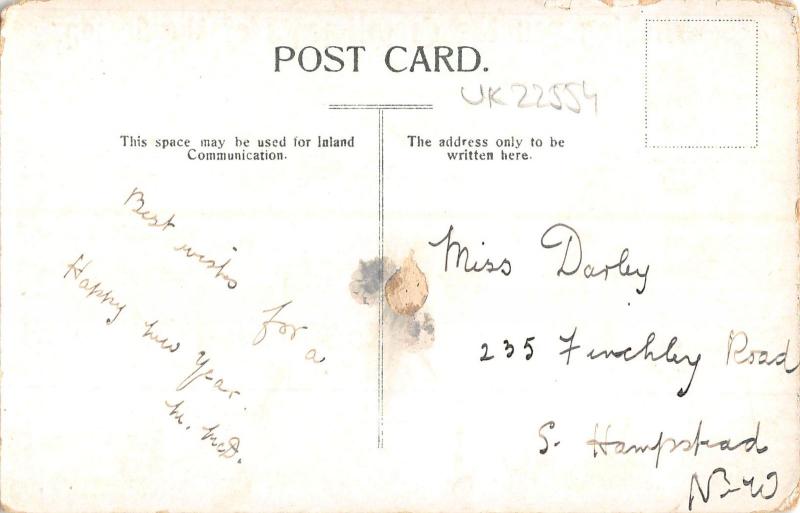 POST CARD.
UK22554
This space may be used for Inland
Communication.
The address only to be
written here.
Best wishes for a
Happy New Year.
M. McD.
Miss Darley
235 Finchley Road
S. Hampstead
N-W